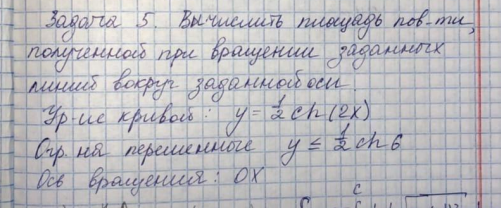 Задача 5. Вычислить площадь пов-ти,
полученной при вращении заданных
линий вокруг заданной оси.
Ур-ие кривой: y = 1/2 ch(2x)
Огр. на переменные y ≤ 1/2 ch 6
Ось вращения: OX